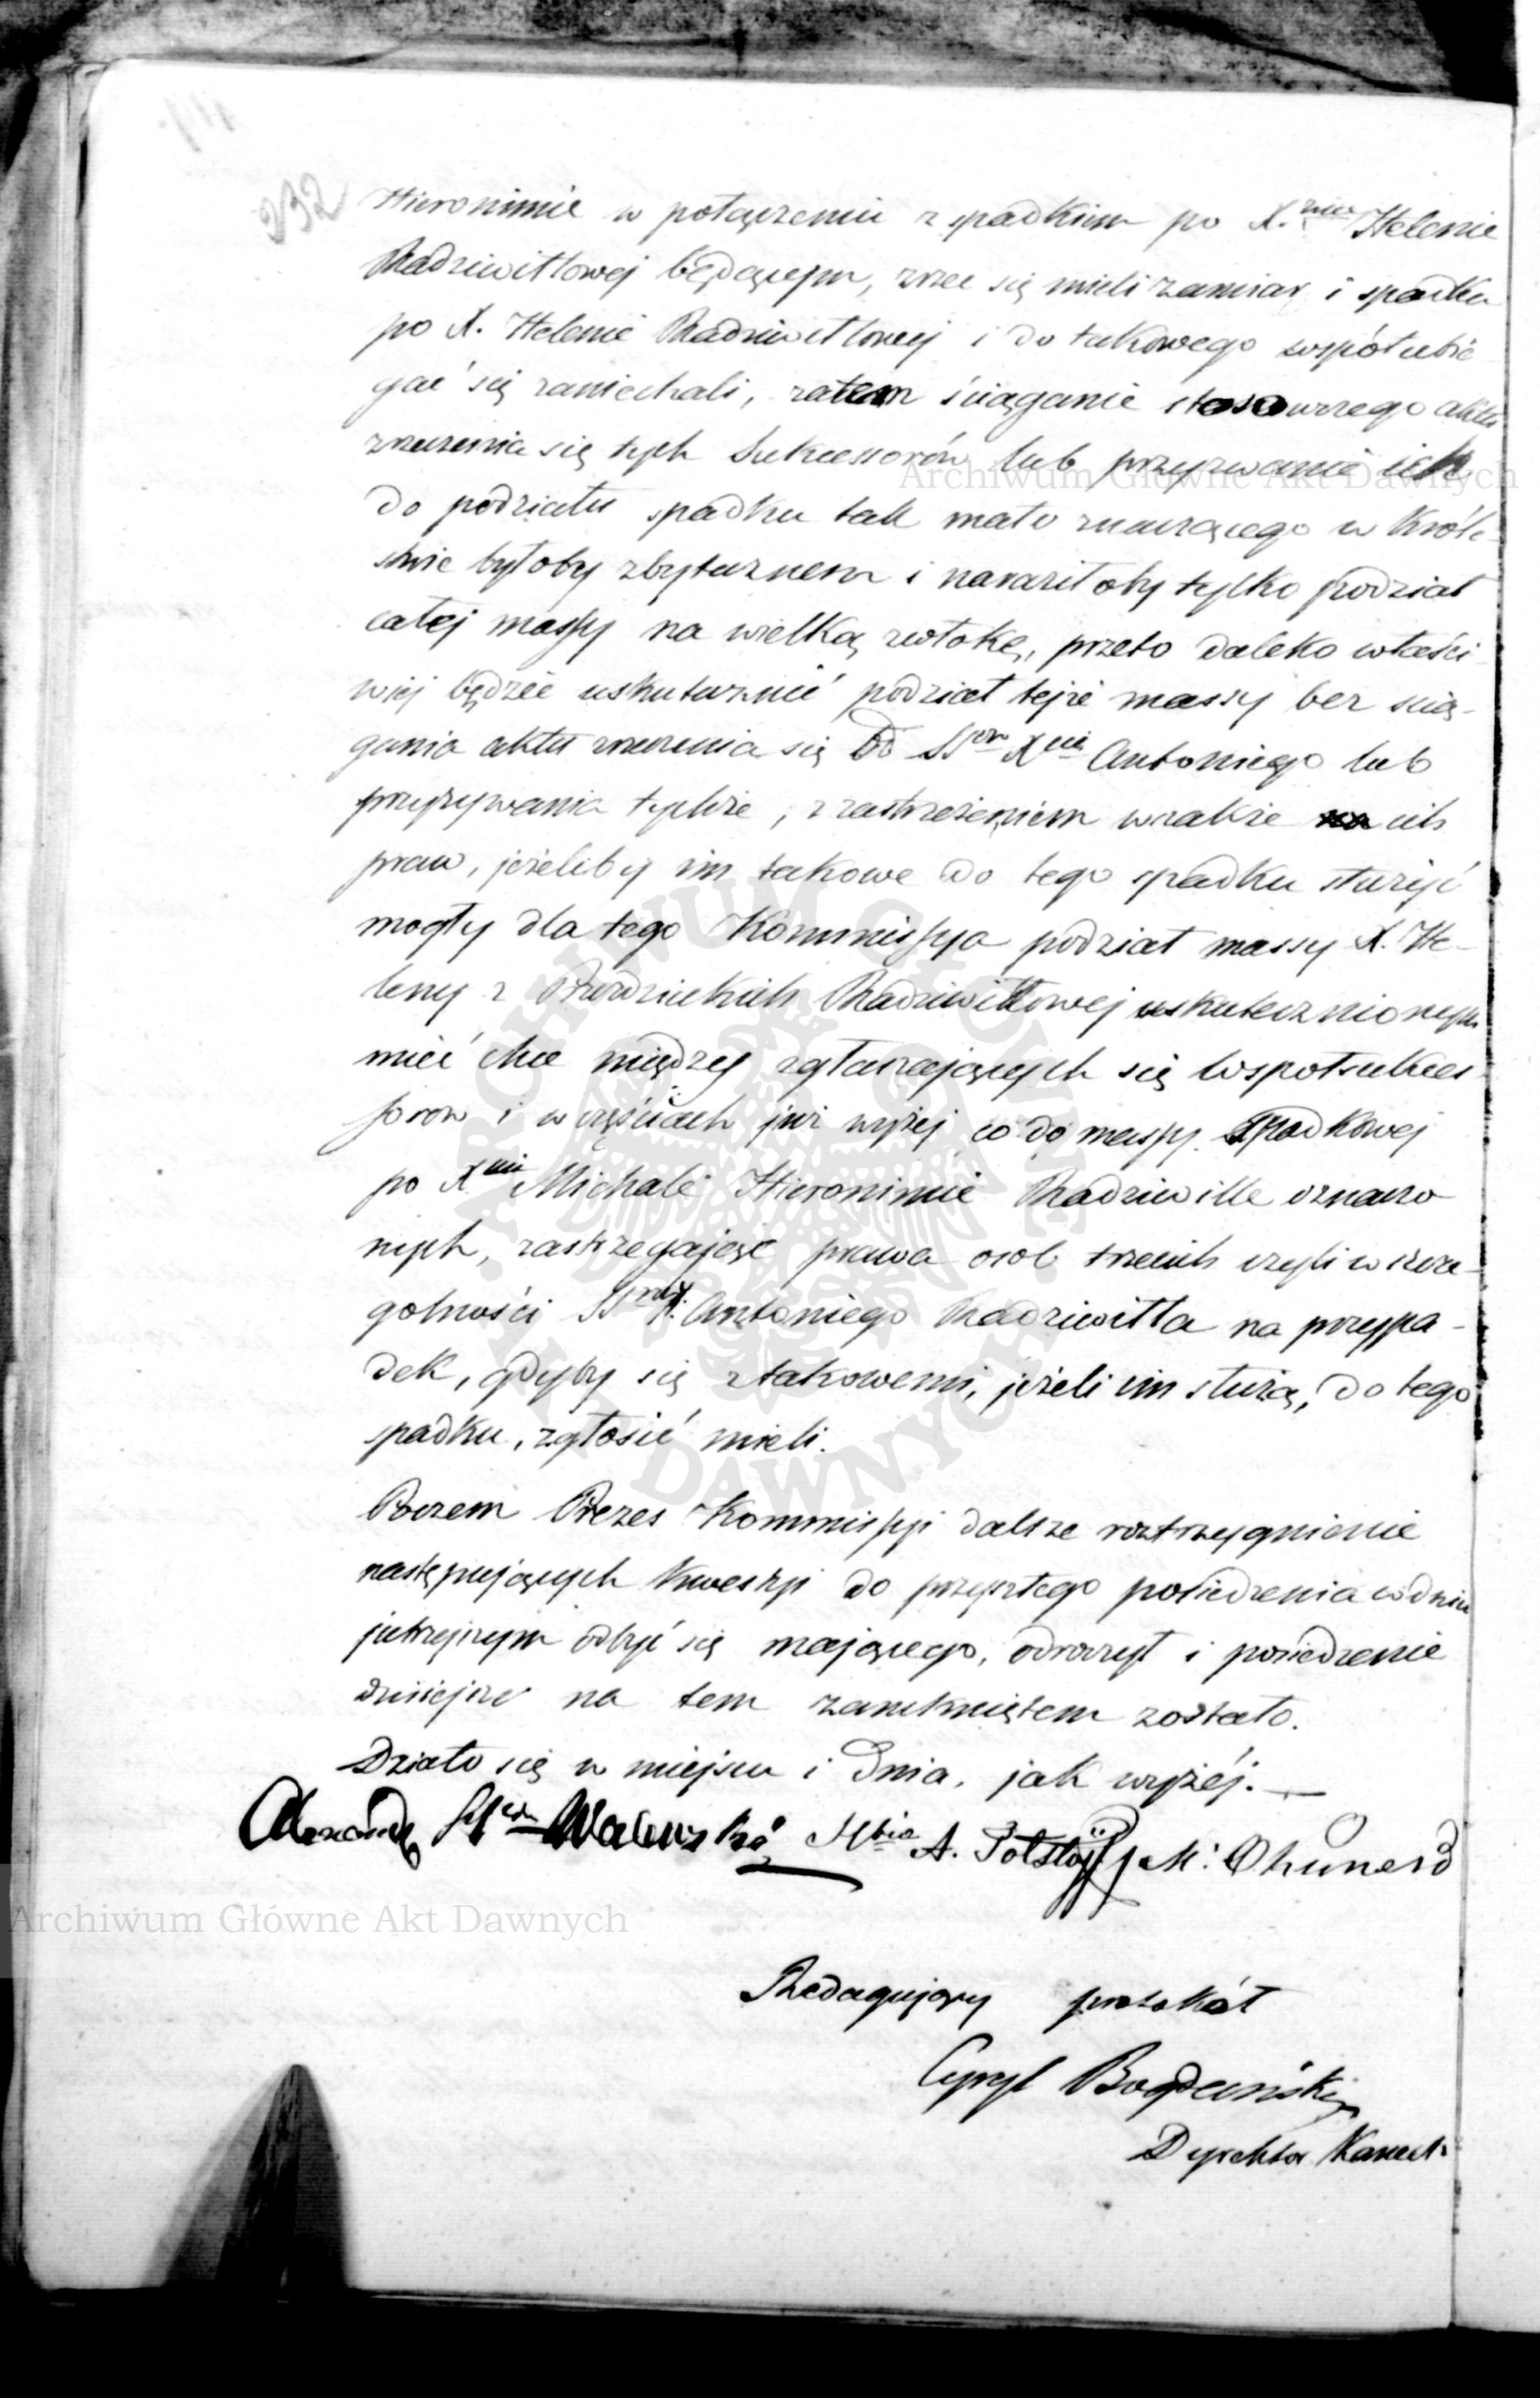 232
Hieronimie w połączeniu z spadkiem po X.żnie Helenie
Radziwiłłowej będącym, zrzec się mieli zamiar i spadku
po X. Helenie Radziwiłłowej i do takowego współubie
gać się zaniechali, zatem ściąganie stosownego aktu
zrzeczenia się tych Sukcessorów lub przyzwanie ich
do podziału spadku tak mało znaczącego w Króle
stwie byłoby zbytecznem i naraziłoby tylko podział
całej massy na wielką zwłokę, przeto daleko właści
wiej będzie uskutecznić podział tejże massy bez ścią-
gania aktu zrzeczenia się od SSrów Xcia Antoniego lub
przyzywania tychże, z zastrzeżeniem wszakże ich
praw, jeżeliby im takowe do tego spadku służyć
mogły dla tego Kommissya podział massy X. He-
leny z Przezdzieckich Radziwiłłowej uskutecznionym
mieć chce między zgłaszających się współsukces
sorow i w częściach już wyżej co do massy Spadkowej
po Xciu Michale Hieronimie Radziwille oznaczo
nych, zastrzegając prawa osob trzecich czyli w szcze-
golności SSrów X. Antoniego Radziwiłła na przypa-
dek, gdyby się z takowemi, jeżeli im służą, do tego
spadku, zgłosić mieli.
Poczem Prezes Kommissyi dalsze roztrzygnienie
następujących kwestyi do przyszłego posiedzenia w dniu
jutrzejszym odbyć się mającego, odroczył i posiedzenie
dzisiejsze na tem zamkniętem zostało.
Działo się w miejscu i dnia, jak wyżej. —
Alexander Walewski Hbia A. Tołstoj M.
Redagujący protokół
Cyryl Bogdański
Dyrektor Kancel.
Archiwum Główne Akt Dawnych
Archiwum Główne Akt Dawnych
ARCHIWUM GŁÓWNE AKT DAWNYCH